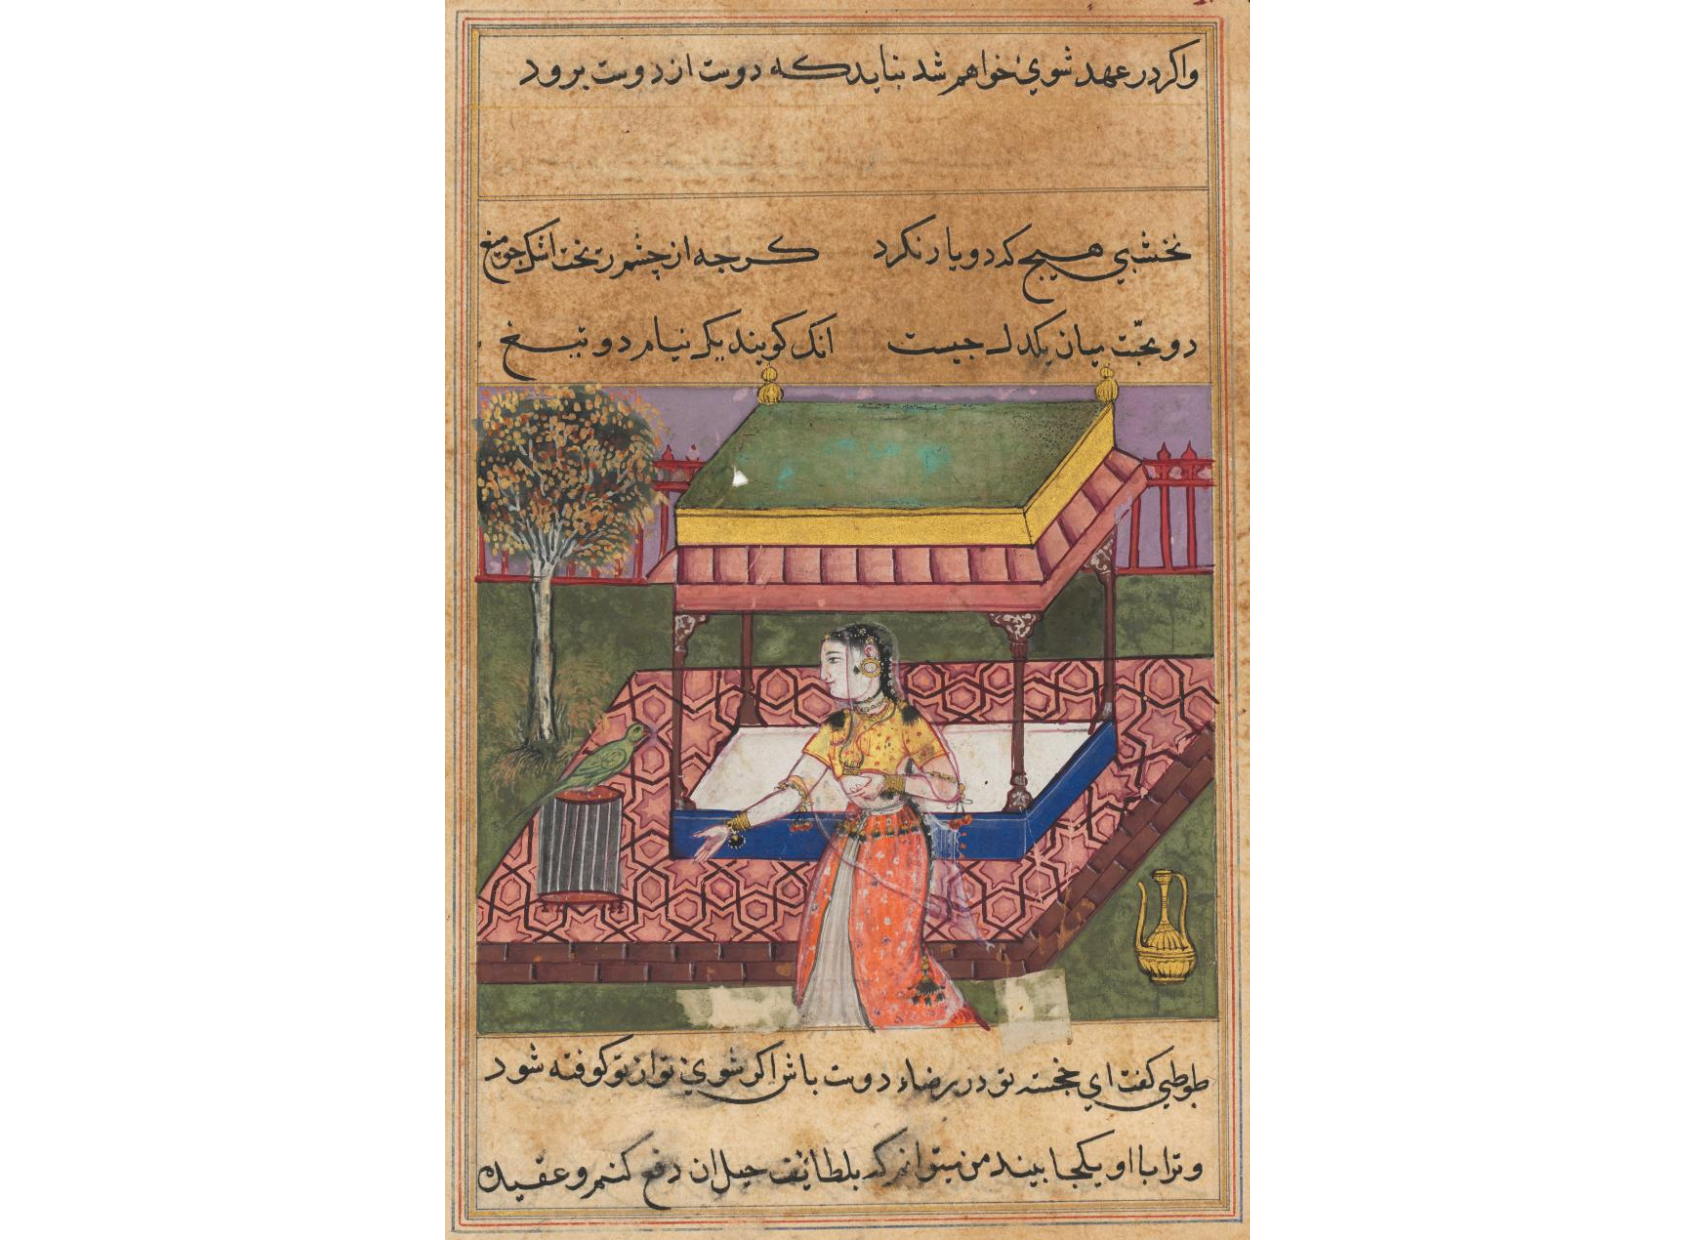 واکر در عهد شوي خواهم شد نبايد که دوست از دوست برود
نخشبي هيچ کد دو يار نکرد کرجه از چشم ريخت اشک جو ميغ
دو محبّت ميان يکدل جيست انک کويند يک نيام دو تيغ
طوطي کفت اي خجسته تو در رضاء دوست باش اکر شوي تو از تو کوفته شود
و ترا با او يکجا بيند من ميتوانم که بلطائف حيل ان دفع کنم و عقيده